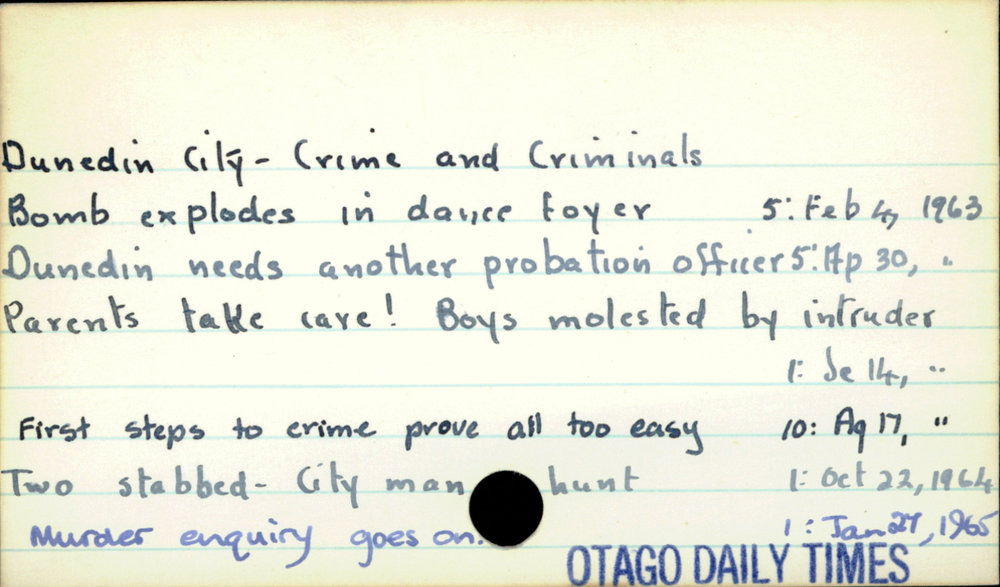 Dunedin City - Crime and Criminals
Bomb explodes in dance foyer 5: Feb 4, 1963
Dunedin needs another probation officer 5: Ap 30, "
Parents take care! Boys molested by intruder
1: Je 14, "
First steps to crime prove all too easy 10: Ag 17, "
Two stabbed - City man hunt 1: Oct 22, 1964
Murder enquiry goes on. 1: Jan 27, 1965
OTAGO DAILY TIMES